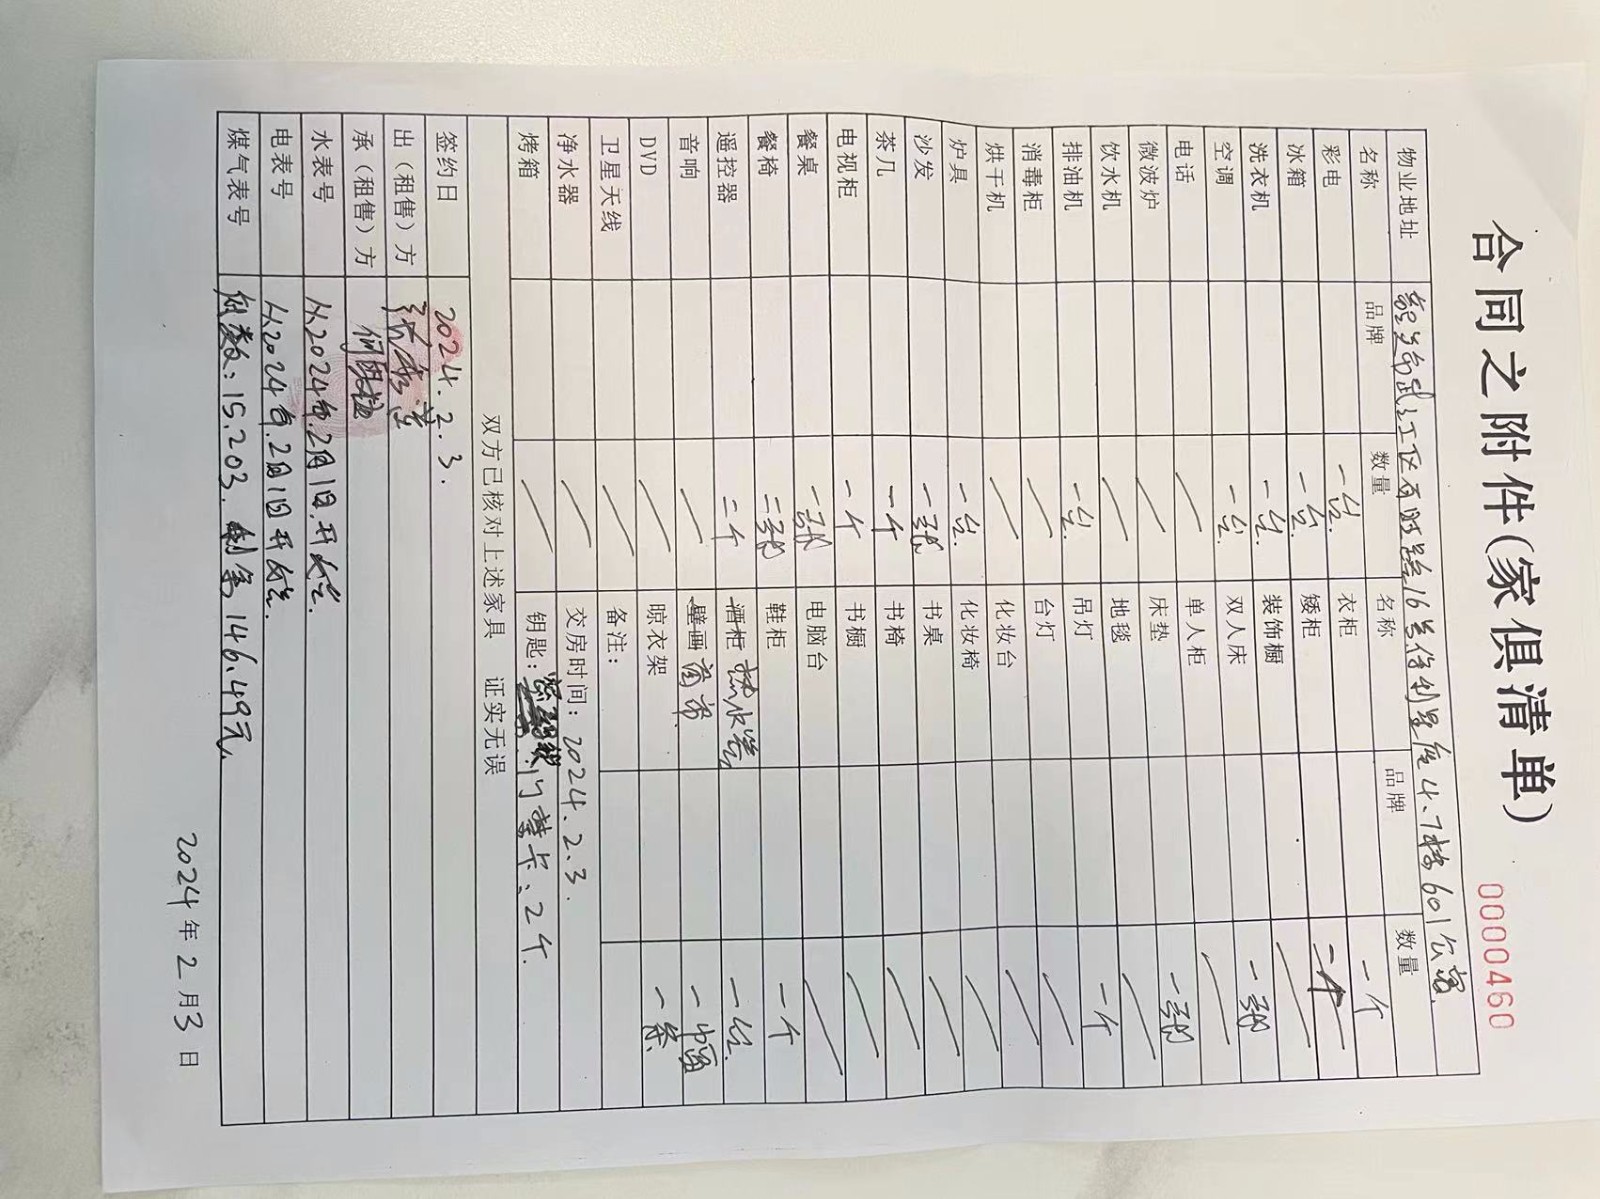 合同之附件(家俱清单)
0000460
物业地址 韶关市武江区百旺路16号保利星座4.7栋601公寓.
名称 品牌 数量 名称 品牌 数量
彩电 一台. 衣柜 一个
冰箱 一台. 矮柜 二个
洗衣机 一台. 装饰橱
空调 一台. 双人床 一张
电话 单人柜
微波炉 床垫 一张
饮水机 地毯
排油机 一台. 吊灯 一个
消毒柜 台灯
烘干机 化妆台
炉具 一台. 化妆椅
沙发 一张 书桌
茶几 一个 书椅
电视柜 一个 书橱
餐桌 一张 电脑台
餐椅 二张 鞋柜 一个
遥控器 二个 酒柜 热水器 一台.
音响 壁画 窗帘 一幅
DVD 晾衣架 一条.
卫星天线 备注:
净水器 交房时间: 2024.2.3.
烤箱 钥匙: 门禁卡: 2个.
双方已核对上述家具 证实无误
签约日 2024.2.3.
出(租售)方
承(租售)方
水表号 从2024年.2月1日.开始.
电表号 从2024年.2月1日开始.
煤气表号 底数: 15.203. 剩余146.49元.
2024年2月3日